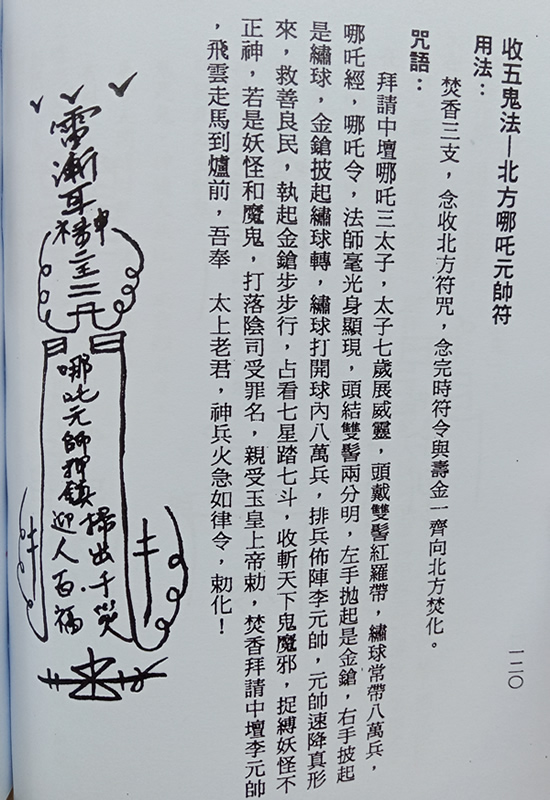 收五鬼法—北方哪吒元帥符
用法：
焚香三支，念收北方符咒，念完時符令與壽金一齊向北方焚化。
咒語：
拜請中壇哪吒三太子，太子七歲展威靈，頭戴雙髻紅羅帶，繡球常帶八萬兵，
哪吒經，哪吒令，法師毫光身顯現，頭結雙髻兩分明，左手拋起是金鎗，右手披起
是繡球，金鎗披起繡球轉，繡球打開球內八萬兵，排兵佈陣李元帥，元帥速降真形
來，救善良民，執起金鎗步步行，占看七星踏七斗，收斬天下鬼魔邪，捉縛妖怪不
正神，若是妖怪和魔鬼，打落陰司受罪名，親受玉皇上帝勅，焚香拜請中壇李元帥
，飛雲走馬到爐前，吾奉　太上老君，神兵火急如律令，勅化！
哪吒元帥押鎮
掃出千災
迎人百福
一二〇